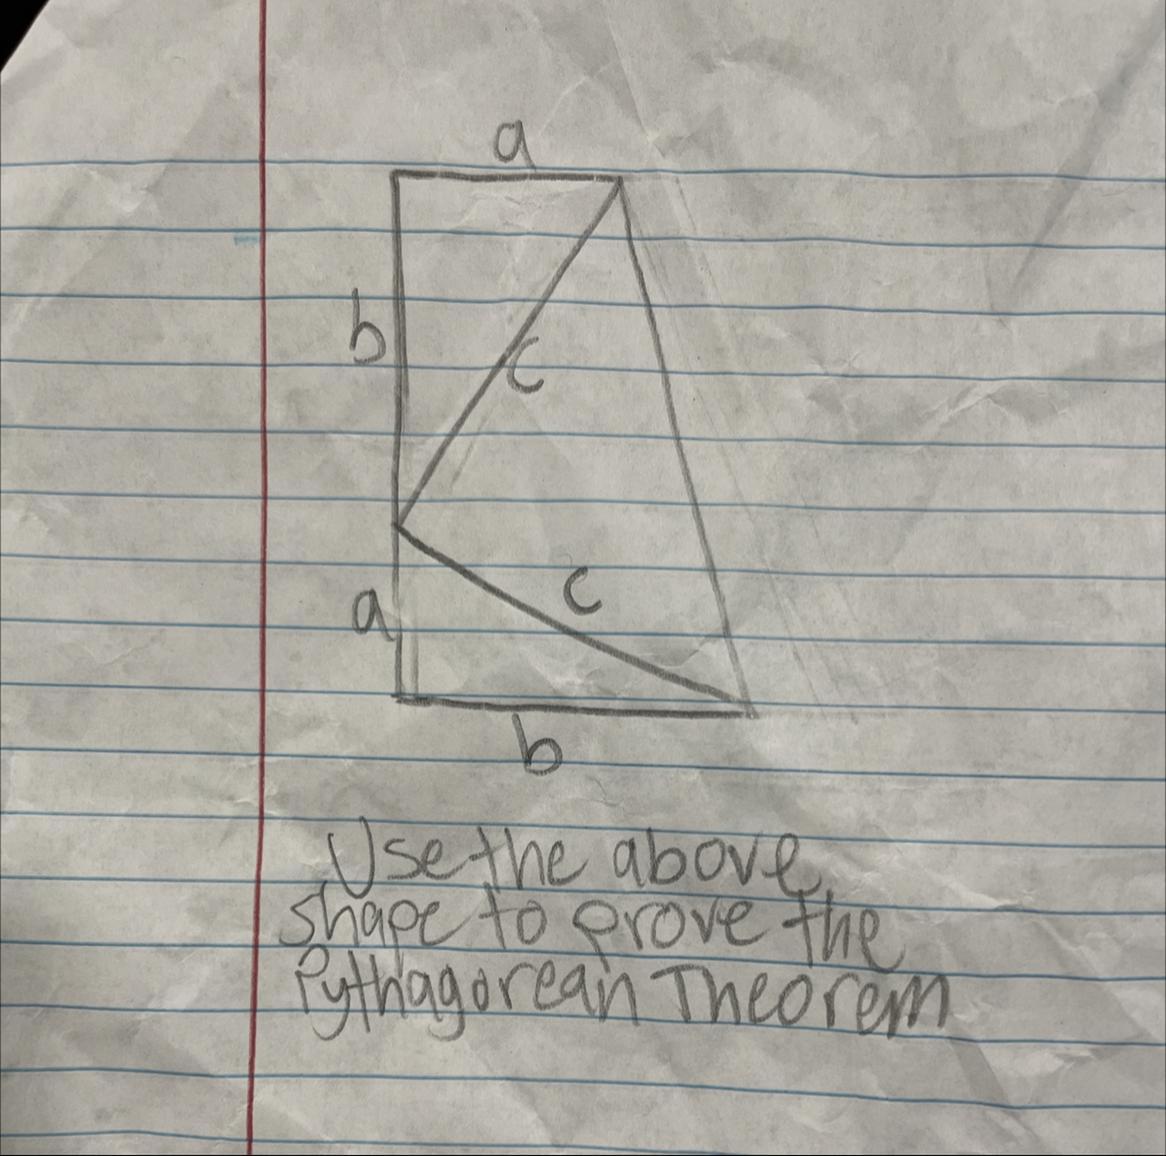 a
b
c
c
a
b
Use the above
shape to prove the
Pythagorean Theorem